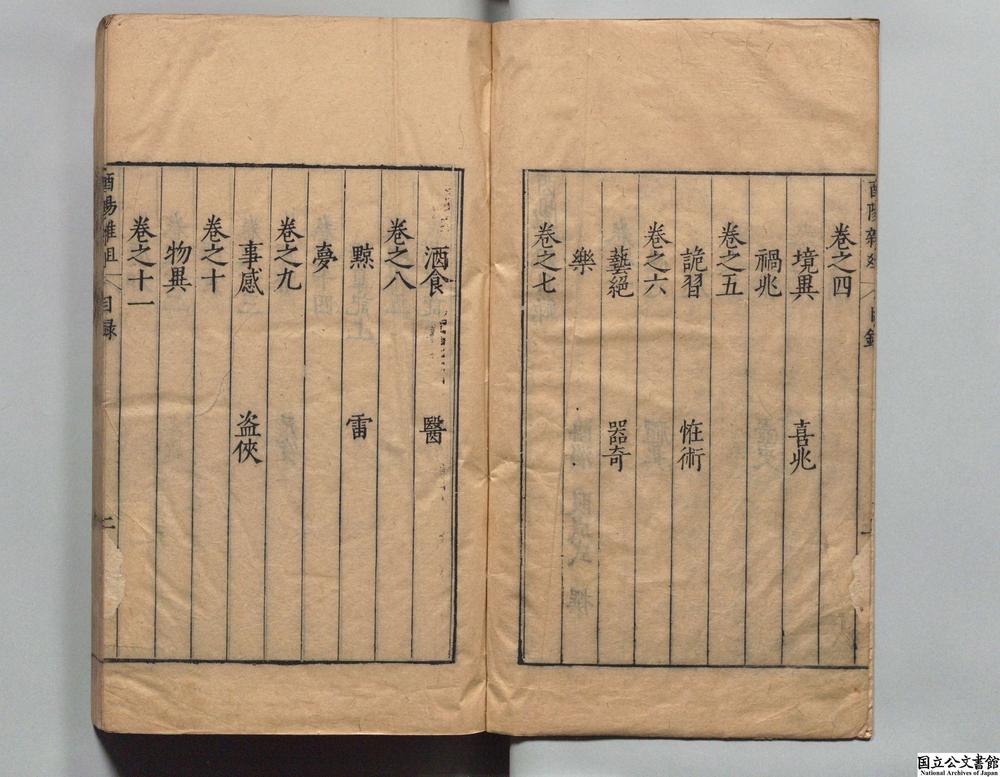 卷之四
境異 喜兆
禍兆
卷之五
詭習 恠術
卷之六
藝絕 器奇
樂
卷之七
酒食 醫
卷之八
黥 雷
夢
卷之九
事感 盗俠
卷之十
物異
卷之十一
酉陽雜俎 目録 二
国立公文書館
National Archives of Japan